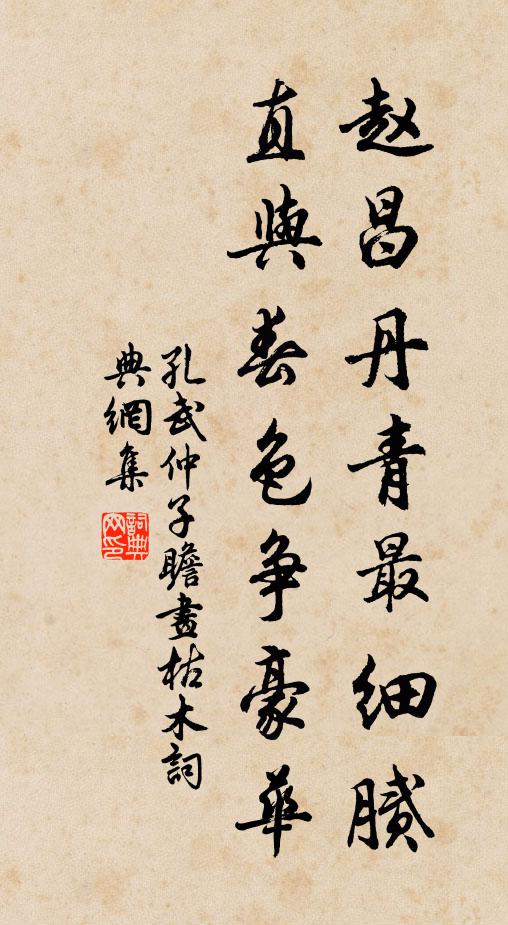 赵昌丹青最细腻
直與春色争豪華
孔武仲子瞻畫枯木詞
典網集
詞典
网印